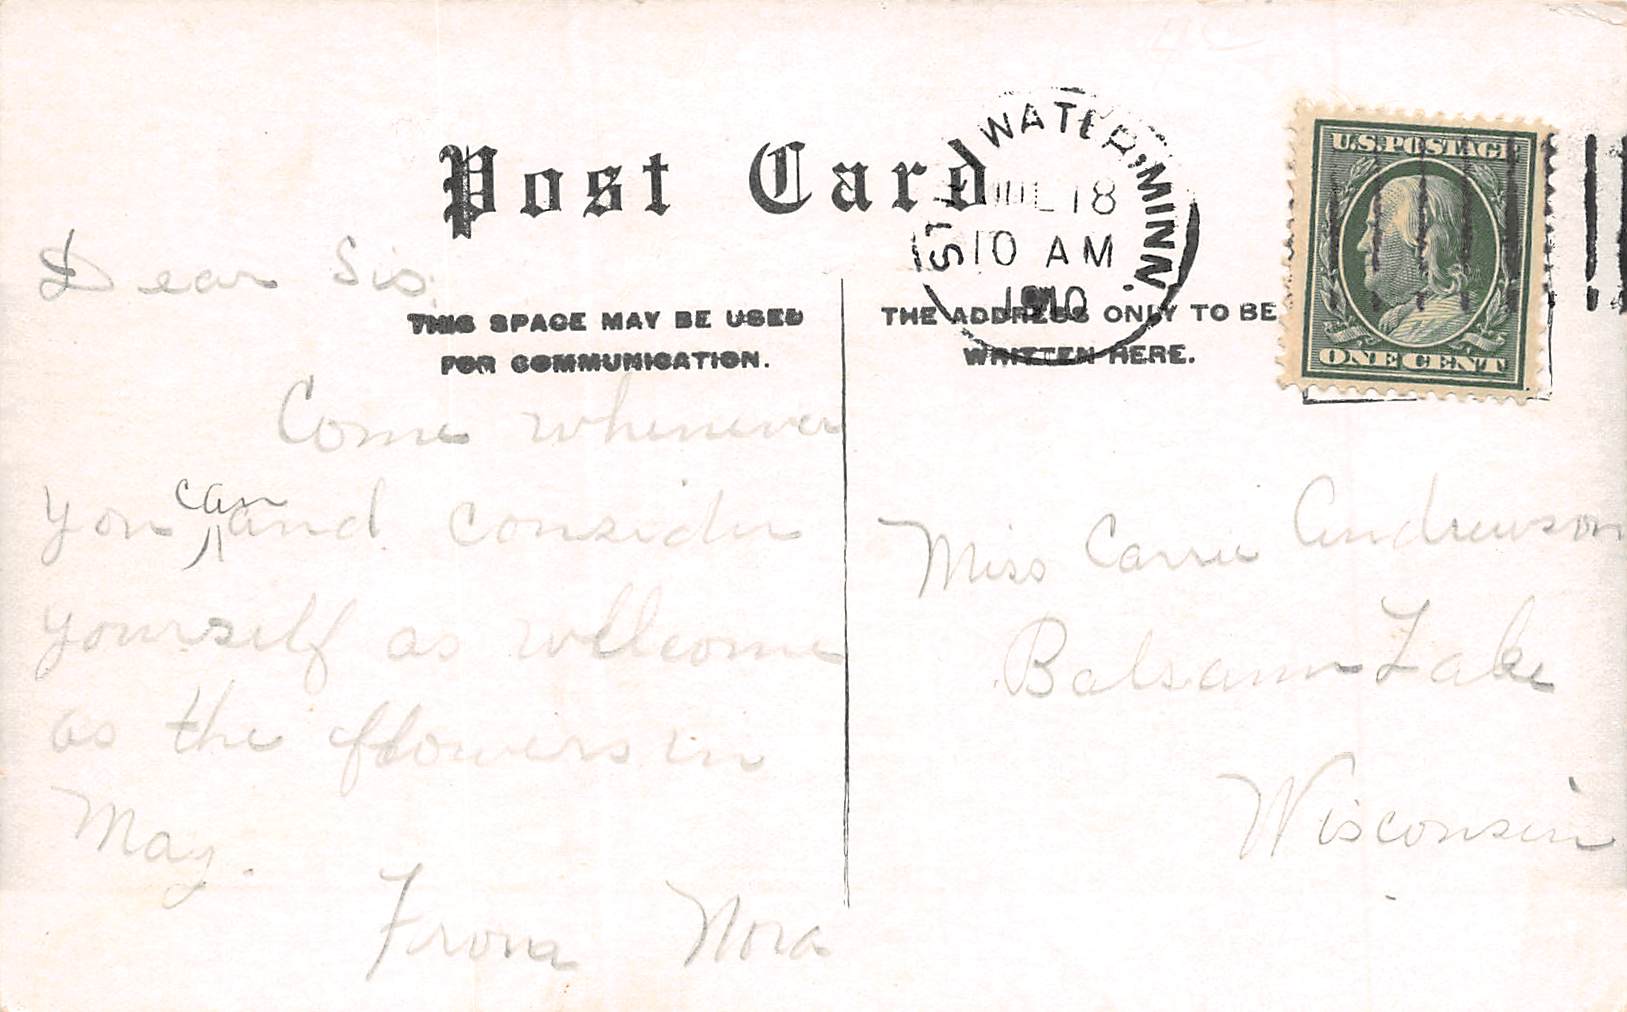 Post Card
STILLWATER, MINN.
JUL 18
10 AM
1910
U.S. POSTAGE
ONE CENT
THIS SPACE MAY BE USED
FOR COMMUNICATION.
THE ADDRESS ONLY TO BE
WRITTEN HERE.
Dear Sis.
Come whenever
you can and consider
yourself as wellcome
as the flowers in
May.
From Nora
Miss Carrie Andrewson
Balsam Lake
Wisconsin